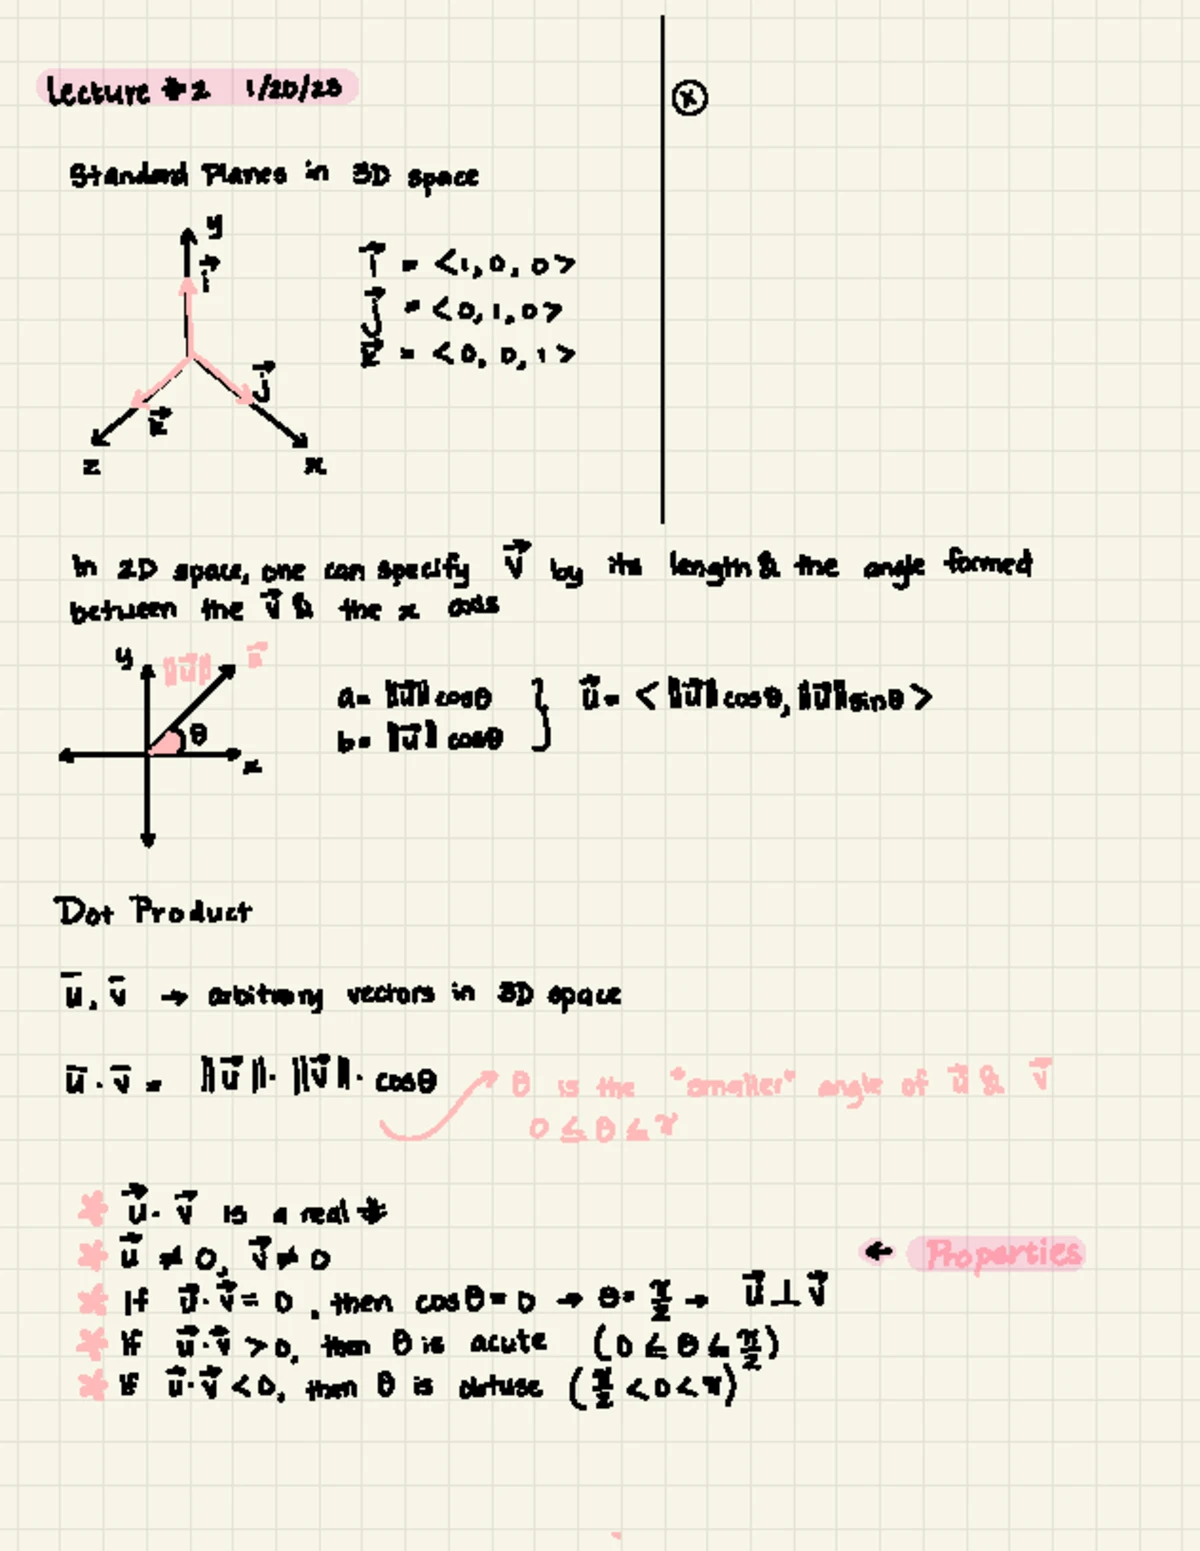 Lecture #2 1/20/23
ⓧ
Standard Planes in 3D space
y
i⃗
j⃗
k⃗
z
x
i⃗ = <1, 0, 0>
j⃗ = <0, 1, 0>
k⃗ = <0, 0, 1>
In 2D space, one can specify v⃗ by its length & the angle formed
between the v⃗ & the x axis
y
||u⃗||
θ
x
a = ||u⃗|| cosθ } u⃗ = <||u⃗|| cosθ, ||u⃗|| sinθ>
b = ||u⃗|| cosθ
Dot Product
u̅, v̅ → arbitrary vectors in 3D space
u̅ · v̅ = ||u⃗|| · ||v⃗|| · cosθ
θ is the "smaller" angle of u⃗ & v⃗
0 ≤ θ ≤ π
* u⃗ · v⃗ is a real #
* u⃗ ≠ 0, v⃗ ≠ 0
← Properties
* If u⃗ · v⃗ = 0, then cosθ = 0 → θ = π/2 → u⃗ ⊥ v⃗
* If u⃗ · v⃗ > 0, then θ is acute (0 ≤ θ ≤ π/2)
* If u⃗ · v⃗ < 0, then θ is obtuse (π/2 < θ < π)